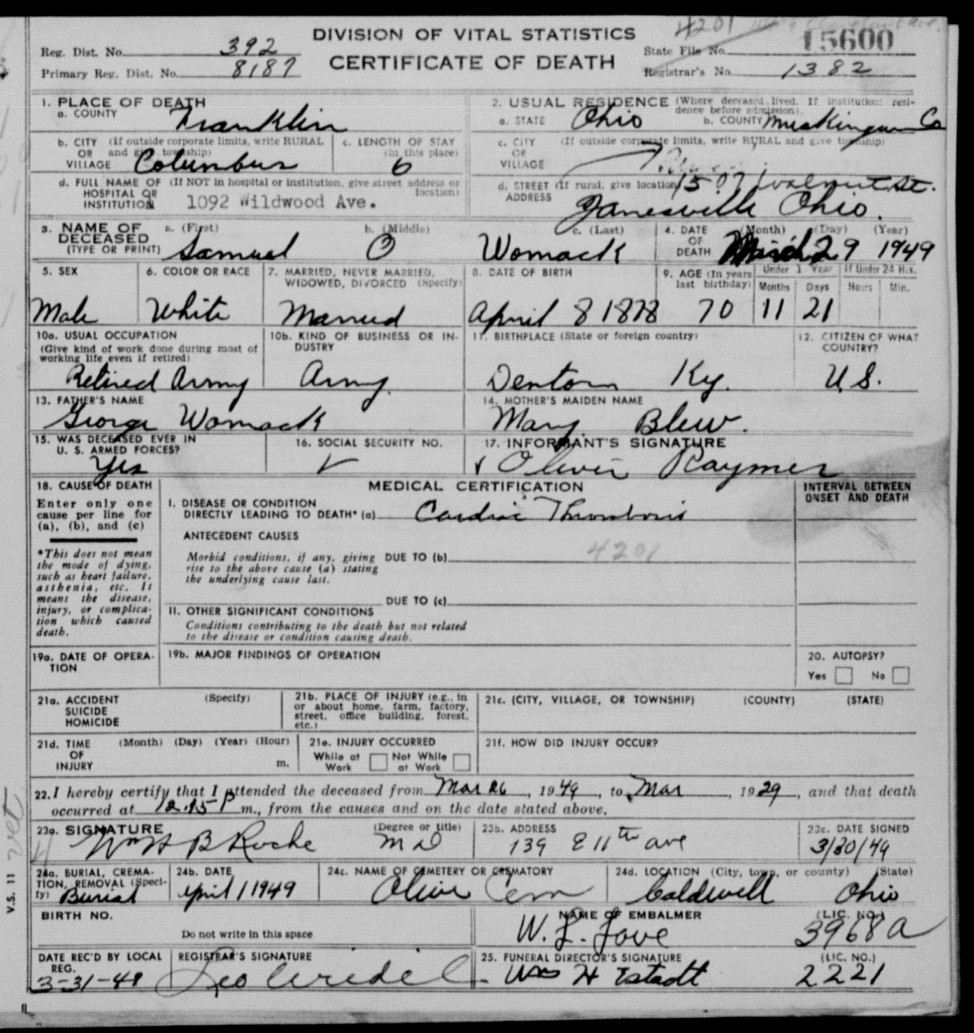 4201
Reg. Dist. No. 392
DIVISION OF VITAL STATISTICS
State File No. 15600
Primary Reg. Dist. No. 8187
CERTIFICATE OF DEATH
Registrar's No. 1382
1. PLACE OF DEATH
a. COUNTY Franklin
2. USUAL RESIDENCE (Where deceased lived. If institution: residence before admission).
a. STATE Ohio b. COUNTY Muskingum Co
b. CITY (If outside corporate limits, write RURAL
OR and give township)
VILLAGE Columbus
c. LENGTH OF STAY
(in this place)
6
c. CITY (If outside corporate limits, write RURAL and give township)
OR
VILLAGE
d. FULL NAME OF (If NOT in hospital or institution, give street address or
HOSPITAL OR location)
INSTITUTION 1092 Wildwood Ave.
d. STREET (If rural, give location) 1507 Walnut St.
ADDRESS Zanesville Ohio.
3. NAME OF a. (First) b. (Middle) c. (Last)
DECEASED
(TYPE OR PRINT) Samuel O Womack
4. DATE (Month) (Day) (Year)
OF
DEATH March 29 1949
5. SEX
Male
6. COLOR OR RACE
White
7. MARRIED, NEVER MARRIED,
WIDOWED, DIVORCED (Specify)
Married
8. DATE OF BIRTH
April 8 1878
9. AGE (In years
last birthday)
70
Under 1 Year
Months Days
11 21
If Under 24 Hrs.
Hours Min.
10a. USUAL OCCUPATION
(Give kind of work done during most of
working life even if retired)
Retired Army
10b. KIND OF BUSINESS OR IN-
DUSTRY
Army
11. BIRTHPLACE (State or foreign country)
Denton Ky.
12. CITIZEN OF WHAT
COUNTRY?
U S.
13. FATHER'S NAME
George Womack
14. MOTHER'S MAIDEN NAME
Mary Blew.
15. WAS DECEASED EVER IN
U. S. ARMED FORCES?
Yes
16. SOCIAL SECURITY NO.
17. INFORMANT'S SIGNATURE
Oliver Raymer
18. CAUSE OF DEATH
Enter only one
cause per line for
(a), (b), and (c)
*This does not mean
the mode of dying,
such as heart failure,
asthenia, etc. It
means the disease,
injury, or complica-
tion which caused
death.
MEDICAL CERTIFICATION
INTERVAL BETWEEN
ONSET AND DEATH
I. DISEASE OR CONDITION
DIRECTLY LEADING TO DEATH* (a) Cardiac Thrombosis
ANTECEDENT CAUSES
4201
Morbid conditions, if any, giving DUE TO (b)
rise to the above cause (a) stating
the underlying cause last.
DUE TO (c)
II. OTHER SIGNIFICANT CONDITIONS
Conditions contributing to the death but not related
to the disease or condition causing death.
19a. DATE OF OPERA-
TION
19b. MAJOR FINDINGS OF OPERATION
20. AUTOPSY?
Yes No
21a. ACCIDENT (Specify)
SUICIDE
HOMICIDE
21b. PLACE OF INJURY (e.g., in
or about home, farm, factory,
street, office building, forest,
etc.)
21c. (CITY, VILLAGE, OR TOWNSHIP) (COUNTY) (STATE)
21d. TIME (Month) (Day) (Year) (Hour)
OF
INJURY m.
21e. INJURY OCCURRED
While at Work Not While at Work
21f. HOW DID INJURY OCCUR?
22. I hereby certify that I attended the deceased from Mar 26, 1949, to Mar, 1929, and that death
occurred at 12.15 P m., from the causes and on the date stated above.
23a. SIGNATURE (Degree or title)
Wm H B Roche M D
23b. ADDRESS
139 E 11th ave
23c. DATE SIGNED
3/30/49
24a. BURIAL, CREMA-
TION, REMOVAL (Speci-
fy) Burial
24b. DATE
April 1 1949
24c. NAME OF CEMETERY OR CREMATORY
Olive Cem
24d. LOCATION (City, town, or county) (State)
Caldwell Ohio
BIRTH NO.
Do not write in this space
NAME OF EMBALMER (LIC. NO.)
W. L. Love 3968a
DATE REC'D BY LOCAL
REG.
3-31-49
REGISTRAR'S SIGNATURE
25. FUNERAL DIRECTOR'S SIGNATURE (LIC. NO.)
H Estadt 2221
V.S. 11
vet